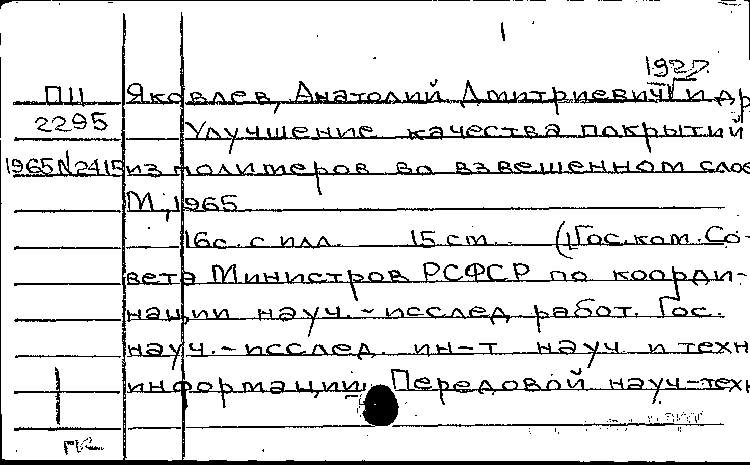 1927
ПII Яковлев, Анатолий Дмитриевич и др
2295 Улучшение качества покрытий
1965 N2415 из полимеров во взвешенном слое
М., 1965
16с. с илл. 15 см. (Гос. ком. Со-
вета Министров РСФСР по коорди-
нации науч.-исслед. работ. Гос.
науч.-исслед. ин-т науч и техн
информации. Передовой науч-техн